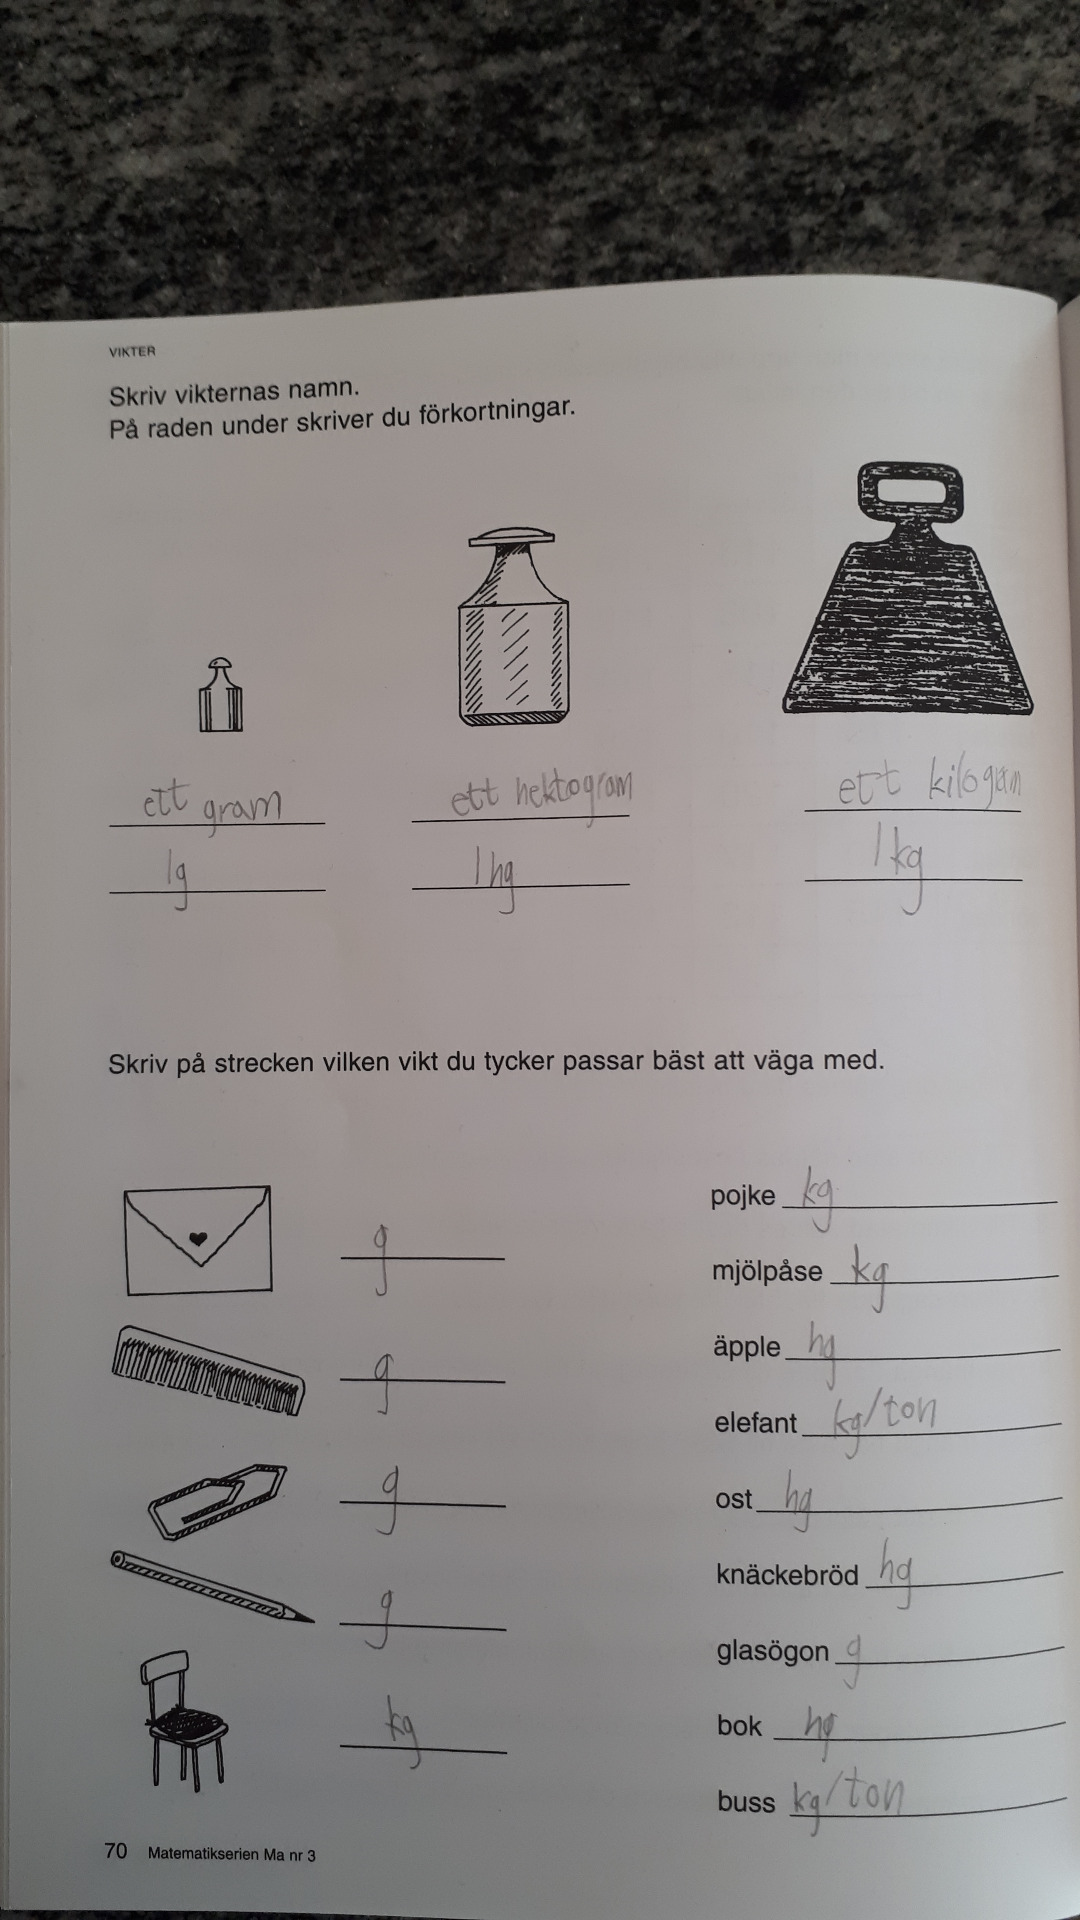 VIKTER
Skriv vikternas namn.
På raden under skriver du förkortningar.
ett gram
ett hektogram
ett kilogram
1g
1hg
1kg
Skriv på strecken vilken vikt du tycker passar bäst att väga med.
g
g
g
g
kg
pojke kg
mjölpåse kg
äpple hg
elefant kg/ton
ost hg
knäckebröd hg
glasögon g
bok hg
buss kg/ton
70 Matematikserien Ma nr 3